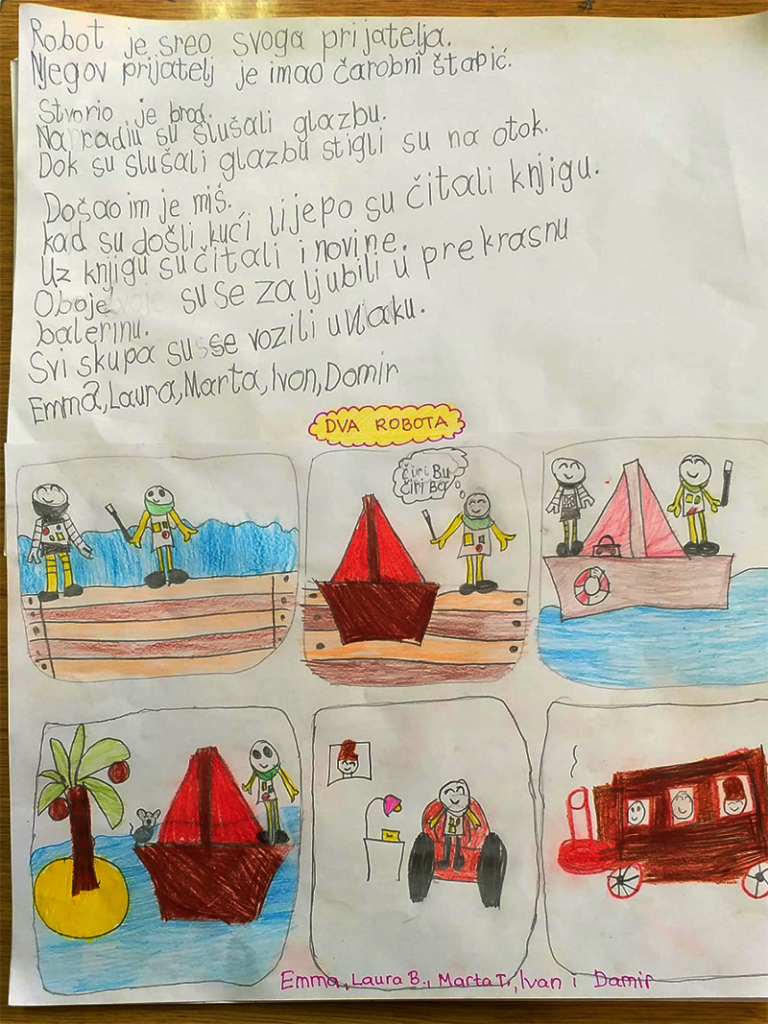 Robot je sreo svoga prijatelja.
Njegov prijatelj je imao čarobni štapić.
Stvorio je brod.
Na radiu su slušali glazbu.
Dok su slušali glazbu stigli su na otok.
Došao im je miš.
kad su došli kući lijepo su čitali knjigu.
Uz knjigu su čitali i novine.
Oboje su se zaljubili u prekrasnu
balerinu.
Svi skupa su se vozili u vlaku.
Emma, Laura, Marta, Ivan, Damir
DVA ROBOTA
Čiri Bu
Čiri Ba
Emma, Laura B., Marta T., Ivan i Damir